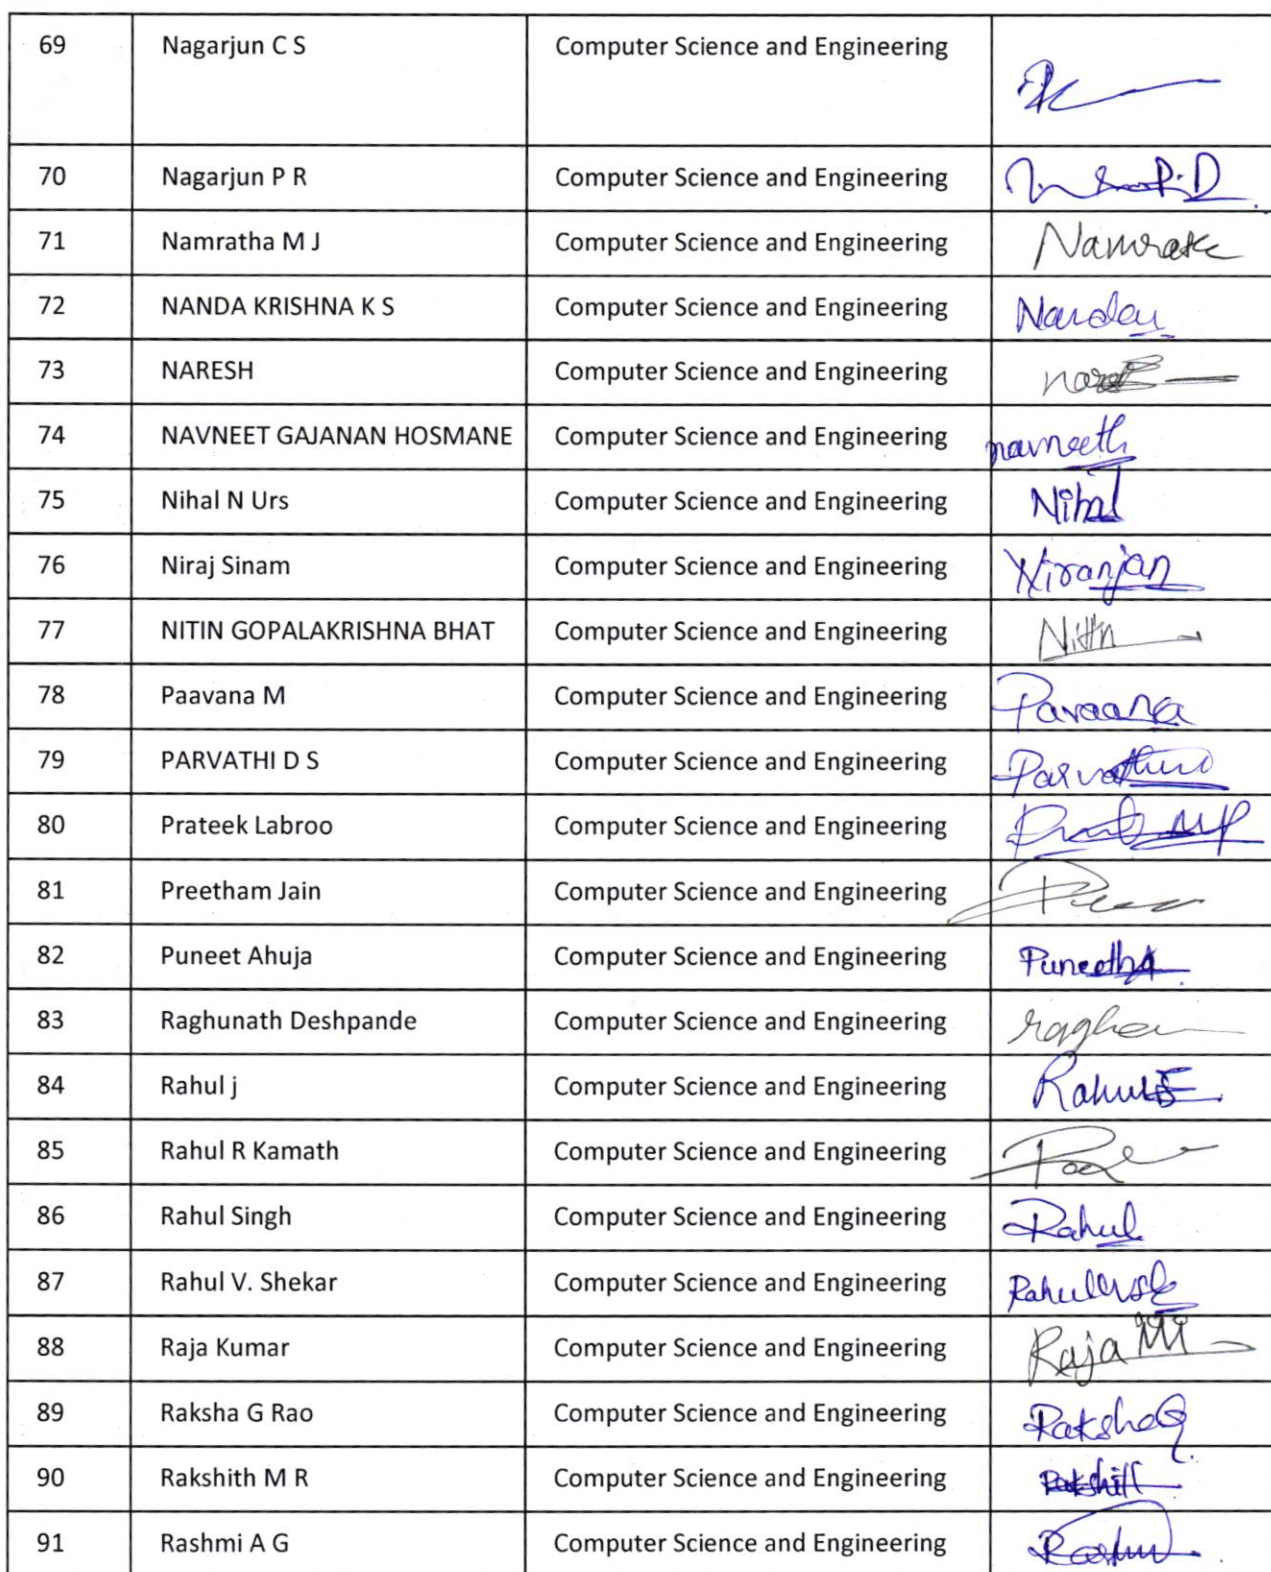 69 Nagarjun C S Computer Science and Engineering
70 Nagarjun P R Computer Science and Engineering
71 Namratha M J Computer Science and Engineering Namrata
72 NANDA KRISHNA K S Computer Science and Engineering
73 NARESH Computer Science and Engineering
74 NAVNEET GAJANAN HOSMANE Computer Science and Engineering navneeth
75 Nihal N Urs Computer Science and Engineering Nihal
76 Niraj Sinam Computer Science and Engineering Niranjan
77 NITIN GOPALAKRISHNA BHAT Computer Science and Engineering Nitin
78 Paavana M Computer Science and Engineering Pavaana
79 PARVATHI D S Computer Science and Engineering
80 Prateek Labroo Computer Science and Engineering
81 Preetham Jain Computer Science and Engineering
82 Puneet Ahuja Computer Science and Engineering Puneetha
83 Raghunath Deshpande Computer Science and Engineering
84 Rahul j Computer Science and Engineering Rahul
85 Rahul R Kamath Computer Science and Engineering
86 Rahul Singh Computer Science and Engineering Rahul
87 Rahul V. Shekar Computer Science and Engineering
88 Raja Kumar Computer Science and Engineering Raja
89 Raksha G Rao Computer Science and Engineering Raksha G
90 Rakshith M R Computer Science and Engineering
91 Rashmi A G Computer Science and Engineering